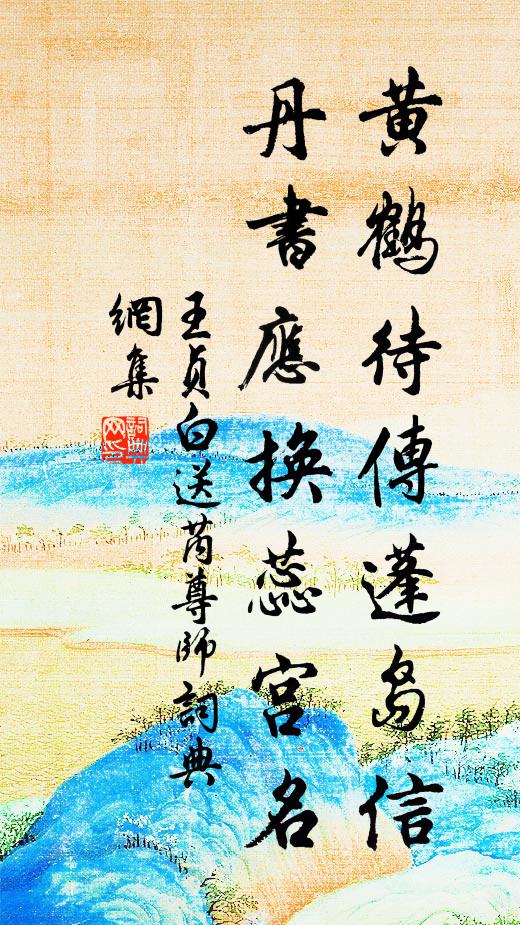 黃鶴待傳蓬島信
丹書應換蕊宮名
王貞白送芮尊師詞典
網集